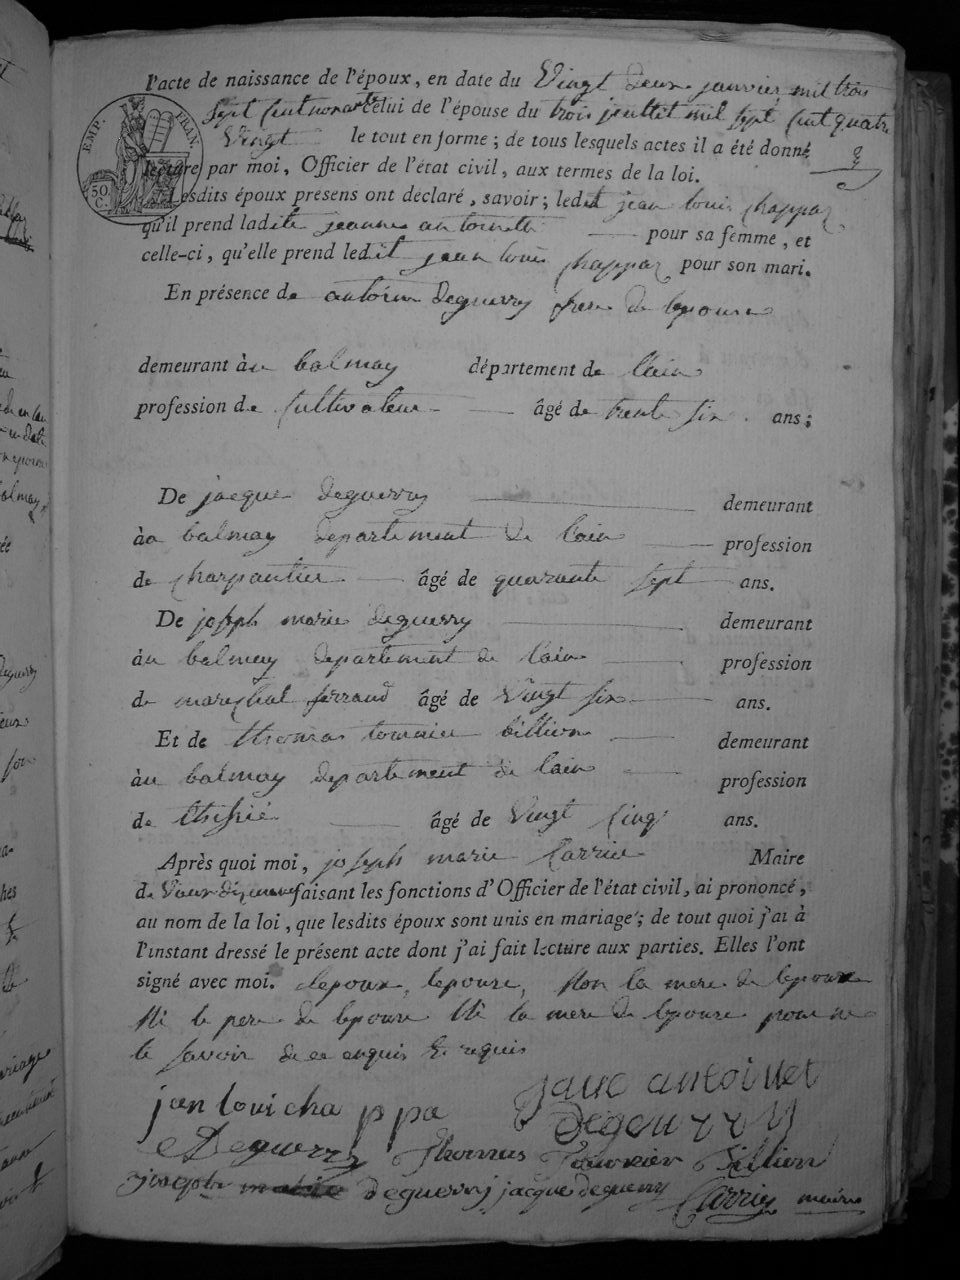 l'acte de naissance de l'époux, en date du Vingt deux janvier mil trois
Sept Cent nonante celui de l'épouse du trois juillet mil sept Cent quatre
Vingt le tout en forme; de tous lesquels actes il a été donné
lecture par moi, Officier de l'état civil, aux termes de la loi.
EMP. FRAN.
50. C.
Lesdits époux presens ont déclaré, savoir; ledit jean louis chappaz
qu'il prend ladite jeanne antoinette pour sa femme, et
celle-ci, qu'elle prend ledit jean louis chappaz pour son mari.
En présence de antoine Deguerry frere de lepouse
demeurant à au balmay département de lain
profession de Cultivateur âgé de trente six ans;
De jacque deguerry demeurant
à au balmay departement de lain profession
de charpantier âgé de quarante sept ans.
De joseph marie deguerry demeurant
à au balmay departement de lain profession
de marechal ferrand âgé de Vingt six ans.
Et de thomas tournier billion demeurant
à au balmay departement de lain profession
de âgé de Vingt Cinq ans.
Après quoi moi, joseph marie Carrier Maire
de faisant les fonctions d'Officier de l'état civil, ai prononcé,
au nom de la loi, que lesdits époux sont unis en mariage; de tout quoi j'ai à
l'instant dressé le présent acte dont j'ai fait lecture aux parties. Elles l'ont
signé avec moi. lepoux, lepouse, Non la mere de lepoux
Ni le pere de lepouse Ni la mere de lepouse pour ne
le savoir de ce enquis et requis
jan loui cha ppa jane antoinet
degeurry
Deguerry Thomas Tournier Billion
joseph marie deguerry jacque deguerry Carrier maire